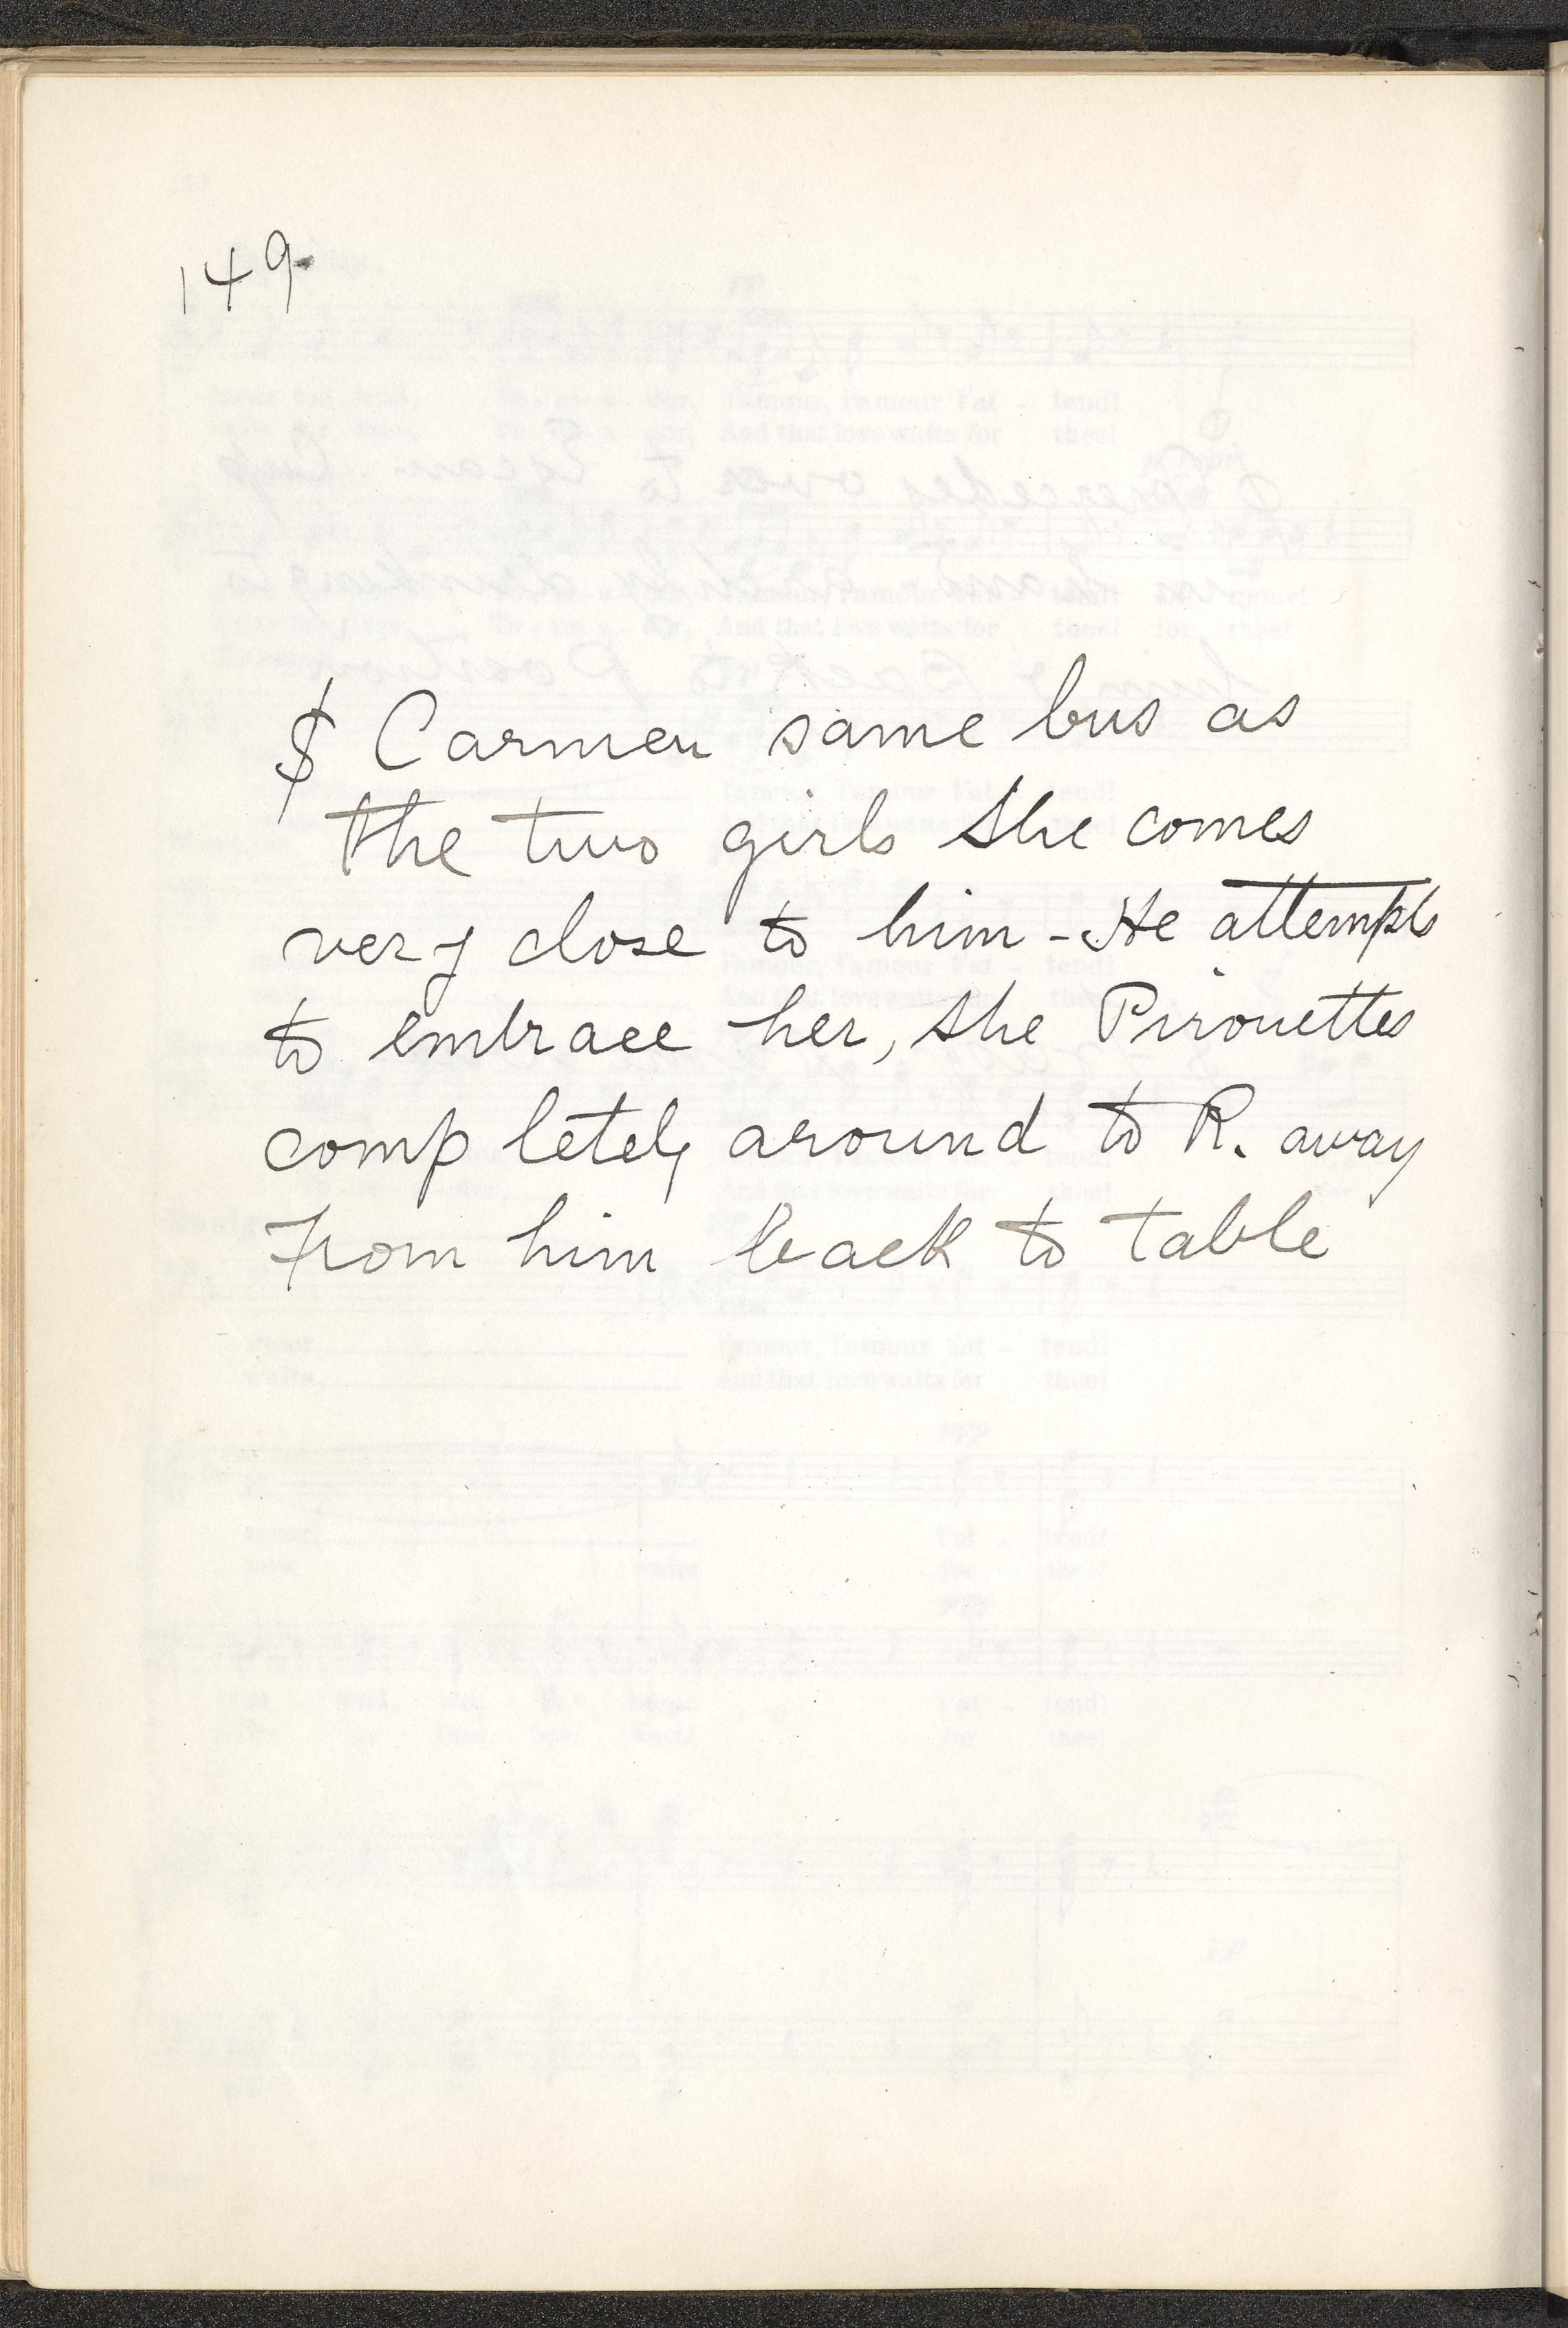 149.
$ Carmen same bus as
the two girls she comes
very close to him - He attempts
to embrace her, she Pirouettes
comp letely around to R. away
from him back to table